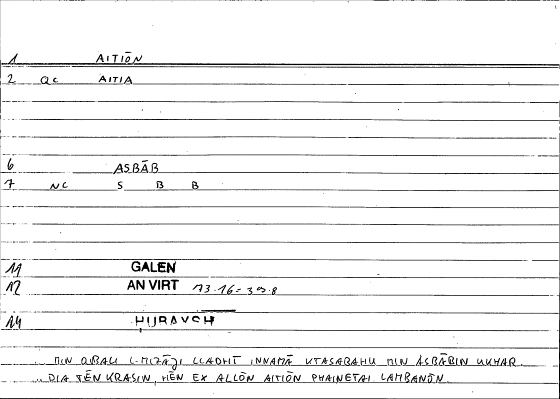 1 AITIŌN
2 QC AITIA
6 ASBĀB
7 NC S B B
11 GALEN
12 AN VIRT 73.16 = 39.8
14 ḤUBAYSH
MIN QIBALI L-MIZĀJI LLADHĪ INNAMĀ KTASABAHU MIN ASBĀBIN UKHAR
DIA TĒN KRASIN, HĒN EX ALLŌN AITIŌN PHAINETAI LAMBANŌN